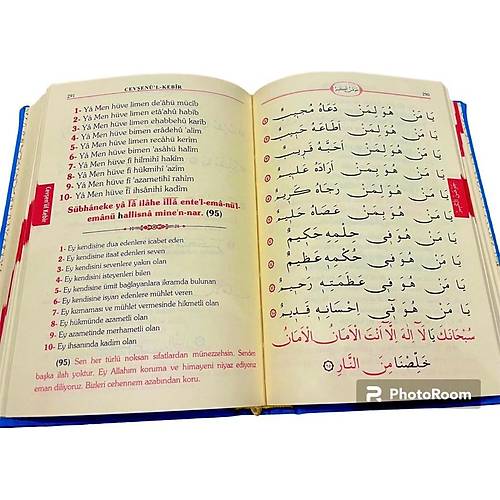 291
CEVŞENÜ'L-KEBİR
1- Yâ Men hüve limen de'âhü mücîb
2- Yâ Men hüve limen etâ'ahü habîb
3- Yâ Men hüve limen ehabbehü karîb
4- Yâ Men hüve bimen erâdehü 'alîm
5- Yâ Men hüve limen recâhü kerîm
6- Yâ Men hüve bimen 'asâhü halîm
7- Yâ Men hüve fî hilmihî hakîm
8- Yâ Men hüve fî hükmihî 'azîm
9- Yâ Men hüve fî 'azametihî rahîm
10- Yâ Men hüve fî ihsânihî kadîm
Sübhâneke yâ lâ ilâhe illâ ente'l-emâ-nü'l-
emânü hallisnâ mine'n-nar. (95)
1- Ey kendisine dua edenlere icabet eden
2- Ey kendisine itaat edenleri seven
3- Ey kendisini sevenlere yakın olan
4- Ey kendisini isteyenleri bilen
5- Ey kendisine ümit bağlayanlara ikramda bulunan
6- Ey kendisine isyan edenlere mühlet veren
7- Ey kusurunu ve mühlet vermesinde hikmetli olan
8- Ey hükmünde azametli olan
9- Ey azametinde merhametli olan
10- Ey ihsanında kadim olan
(95) Sen her türlü noksan sıfatlardan münezzehsin. Senden
başka ilah yoktur. Ey Allahım koruma ve himayeni niyaz ediyoruz
eman diliyoruz. Bizleri cehennem azabından koru.
Cevşenü'l Kebîr
290
يَا مَنْ هُوَ لِمَنْ دَعَاهُ مُجِيبٌ
يَا مَنْ هُوَ لِمَنْ اَطَاعَهُ حَبِيبٌ
يَا مَنْ هُوَ لِمَنْ اَحَبَّهُ قَرِيبٌ
يَا مَنْ هُوَ بِمَنْ اَرَادَهُ عَلِيمٌ
يَا مَنْ هُوَ لِمَنْ رَجَاهُ كَرِيمٌ
يَا مَنْ هُوَ بِمَنْ عَصَاهُ حَلِيمٌ
يَا مَنْ هُوَ فِى حِلْمِهِ حَكِيمٌ
يَا مَنْ هُوَ فِى حُكْمِهِ عَظِيمٌ
يَا مَنْ هُوَ فِى عَظَمَتِهِ رَحِيمٌ
يَا مَنْ هُوَ فِى اِحْسَانِهِ قَدِيمٌ
سُبْحَانَكَ يَا لَا اِلٰهَ اِلَّا اَنْتَ الْاَمَانُ الْاَمَانُ
خَلِّصْنَا مِنَ النَّارِ
PhotoRoom